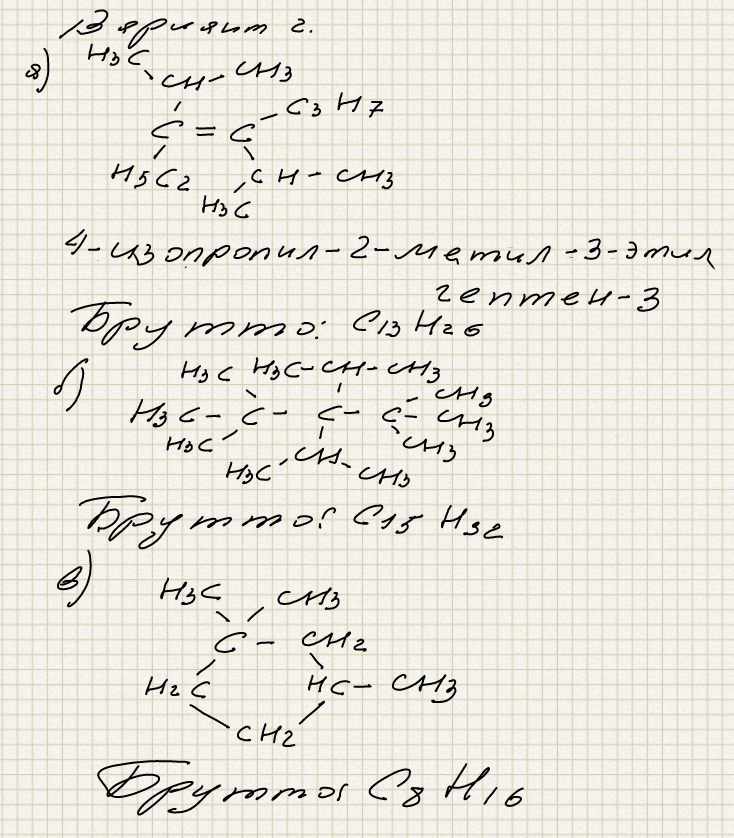 Вариант 2.
а) H3C
CH - CH3
C = C - C3H7
H5C2 CH - CH3
H3C
4-изопропил-2-метил-3-этил
гептен-3
Брутто: C13H26
б) H3C H3C-CH-CH3
CH3
H3C - C - C - C - CH3
H3C CH3
H3C CH - CH3
Брутто: C15H32
в) H3C CH3
C - CH2
H2C HC - CH3
CH2
Брутто: C8H16